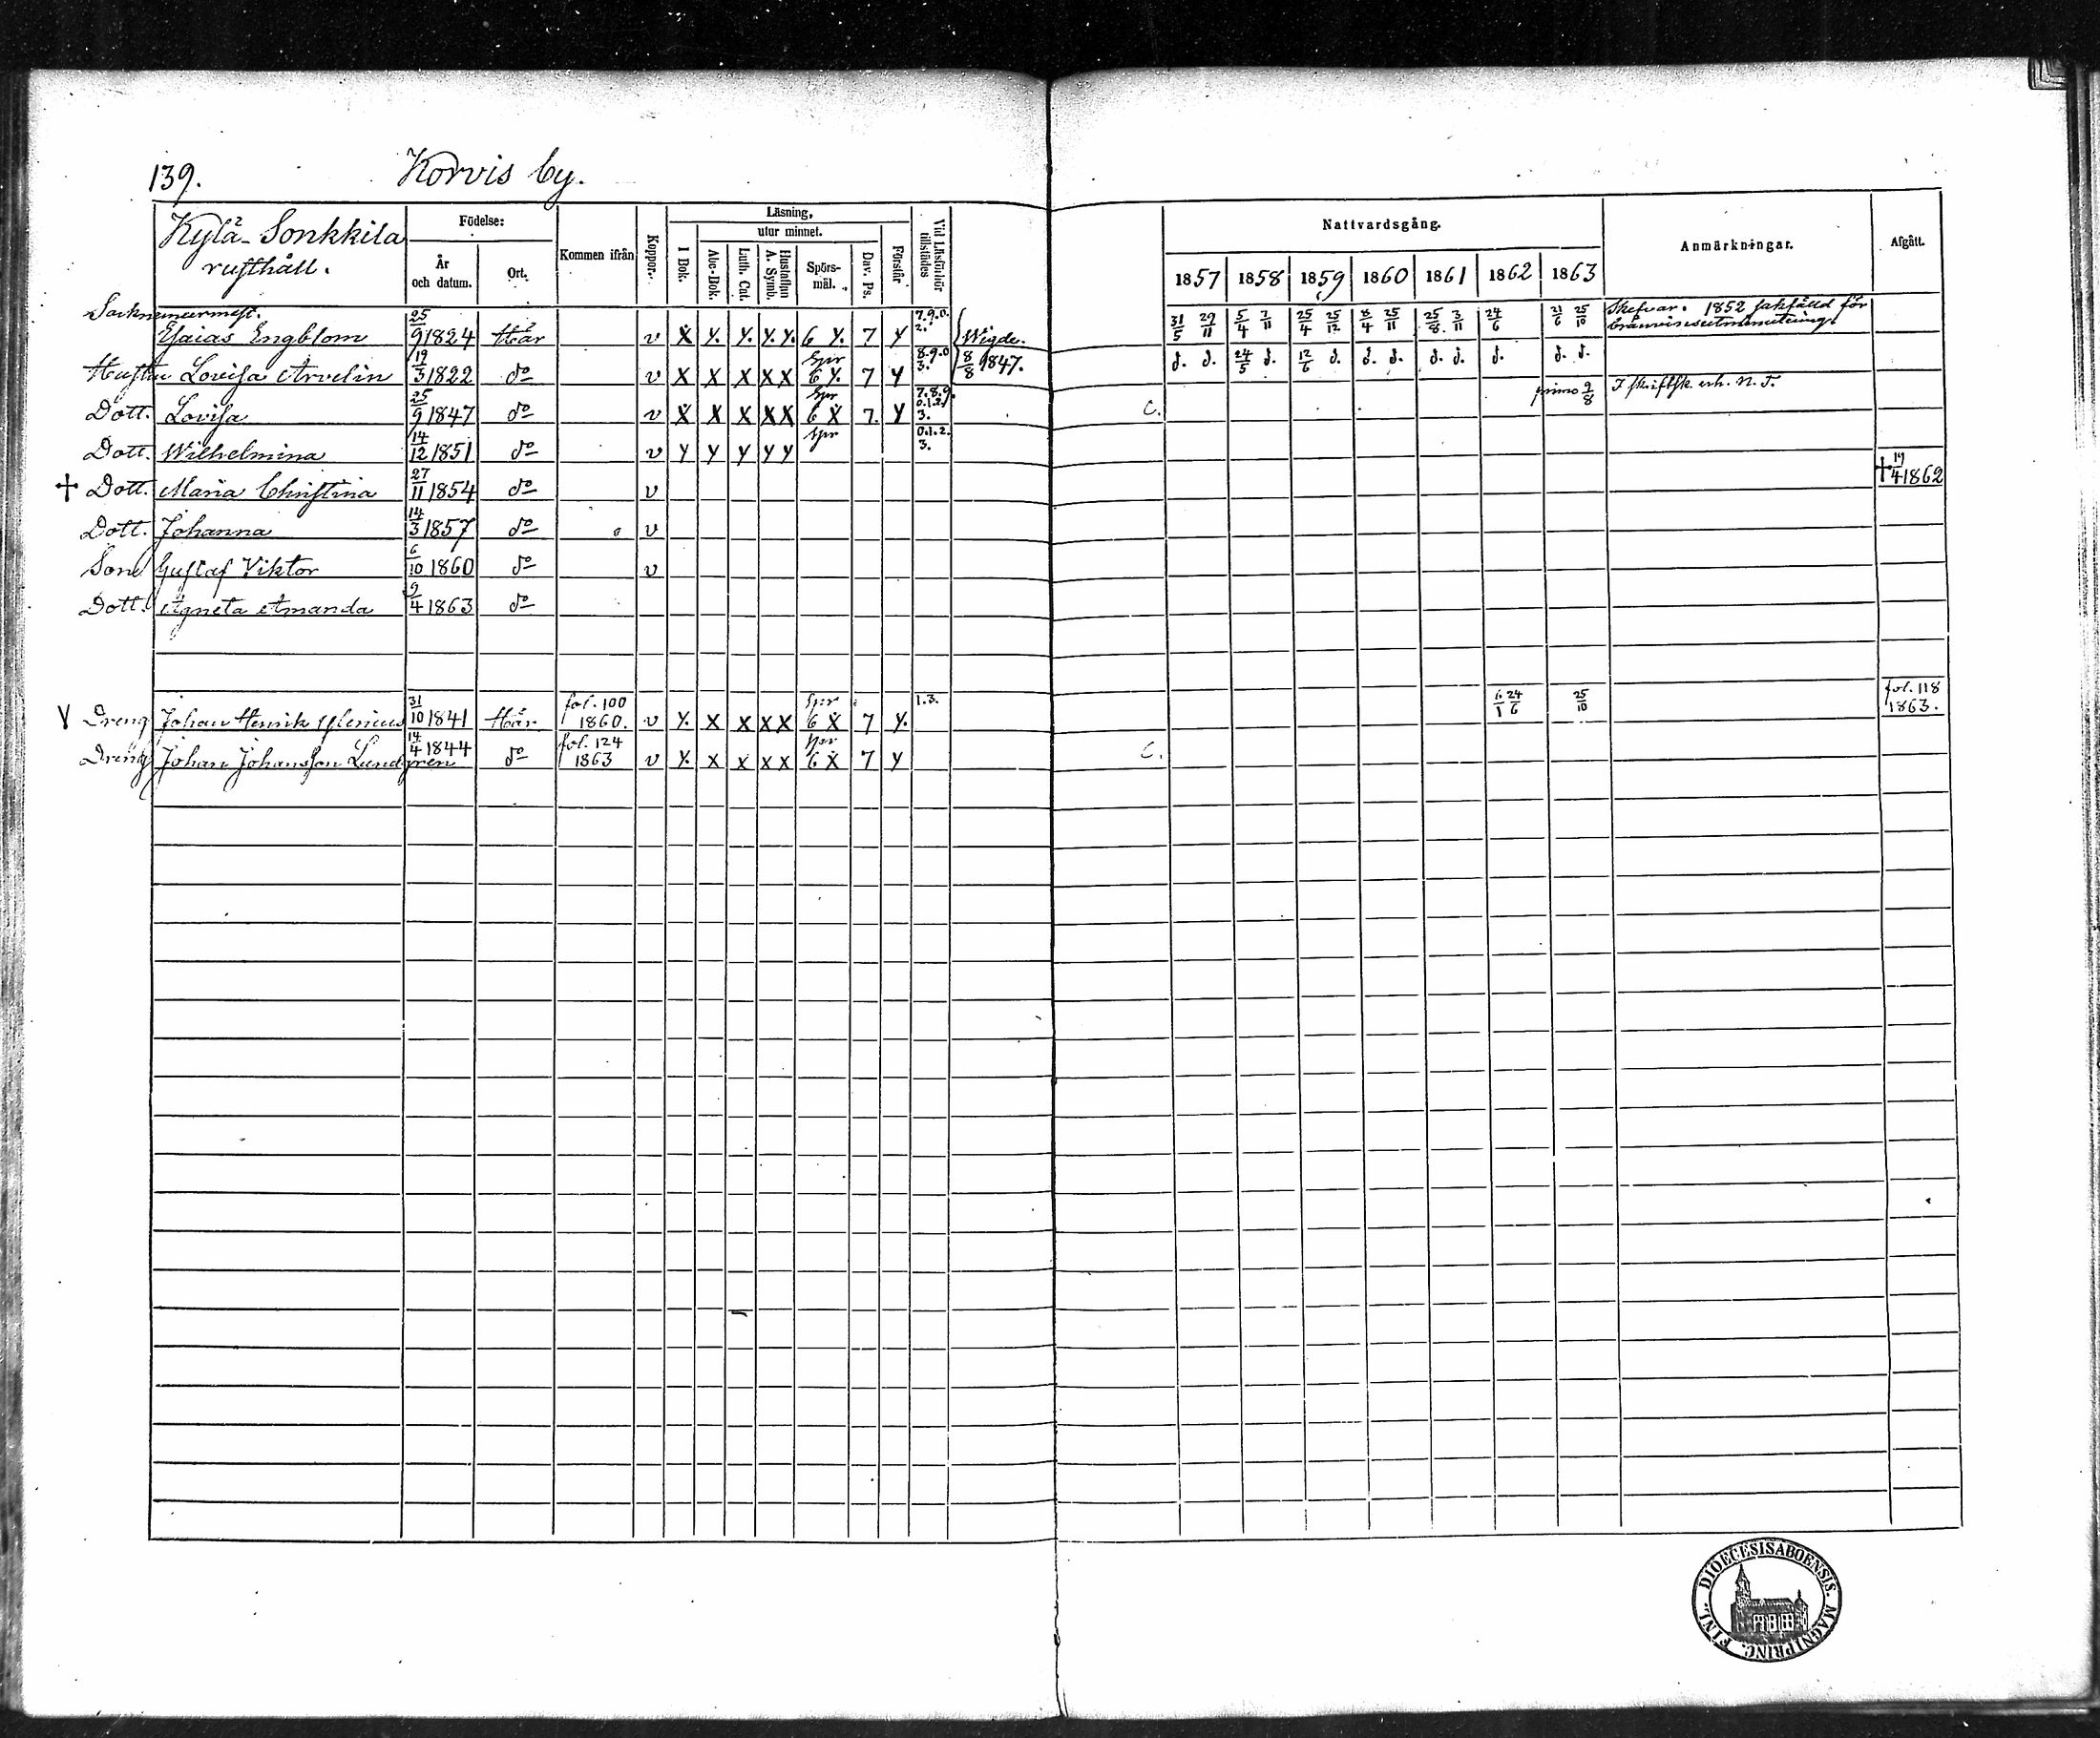 139. Korvis by.
Kylä-Sonkkila
rusthåll.
Födelse:
År
och datum.
Ort.
Kommen ifrån
Koppor.
Läsning,
utur minnet.
I Bok.
Abc-Bok.
Luth. Cat.
Hustaflan
A. Symb.
Spörs-
mål.
Dav. Ps.
Förstår
Vid Läsförhör
tillstädes
Nattvardsgång.
1857 1858 1859 1860 1861 1862 1863
Anmärkningar.
Afgått.
Esaias Engblom 25/9 1824 Här v X Y. Y. Y. Y. 6 Y. 7 Y 7.9.0. 2. Wigde 31/5 29/11 5/4 7/11 25/4 25/12 8/4 25/11 25/8 3/11 24/6 21/6 25/10 1852 sakfälld för
Hustru Lovisa Arvelin 19/3 1822 do v X X X X X Spr 6 Y. 7 Y 8.9.0 3. 8/8 1847. d. d. 24/5 d. 12/6 d. d. d. d. d. d. d. d.
Dott. Lovisa 25/9 1847 do v X X X X X Spr 6 X 7. Y 7.8.9. 0.1.2. 3. C. primo 9/8 I skriftsk. erh. N. T.
Dott. Wilhelmina 14/12 1851 do v Y Y Y Y Y Spr 0.1.2. 3.
+ Dott. Maria Christina 27/11 1854 do v + 19/4 1862
Dott. Johanna 14/3 1857 do v
Son Gustaf Viktor 6/10 1860 do v
Dott. Agneta Amanda 9/4 1863 do
V Dreng Johan Henrik 31/10 1841 Här fol. 100 1860. v Y. X X X X Spr 6 X 7 Y. 1.3. 6/1 24/6 25/10 fol. 118 1863.
Dreng Johan Johansson Lundgren 14/4 1844 do fol. 124 1863 v Y. X X X X Spr 6 X 7 Y C.
DIOECESIS ABOENSIS. MAGNI PRINC. FINL.